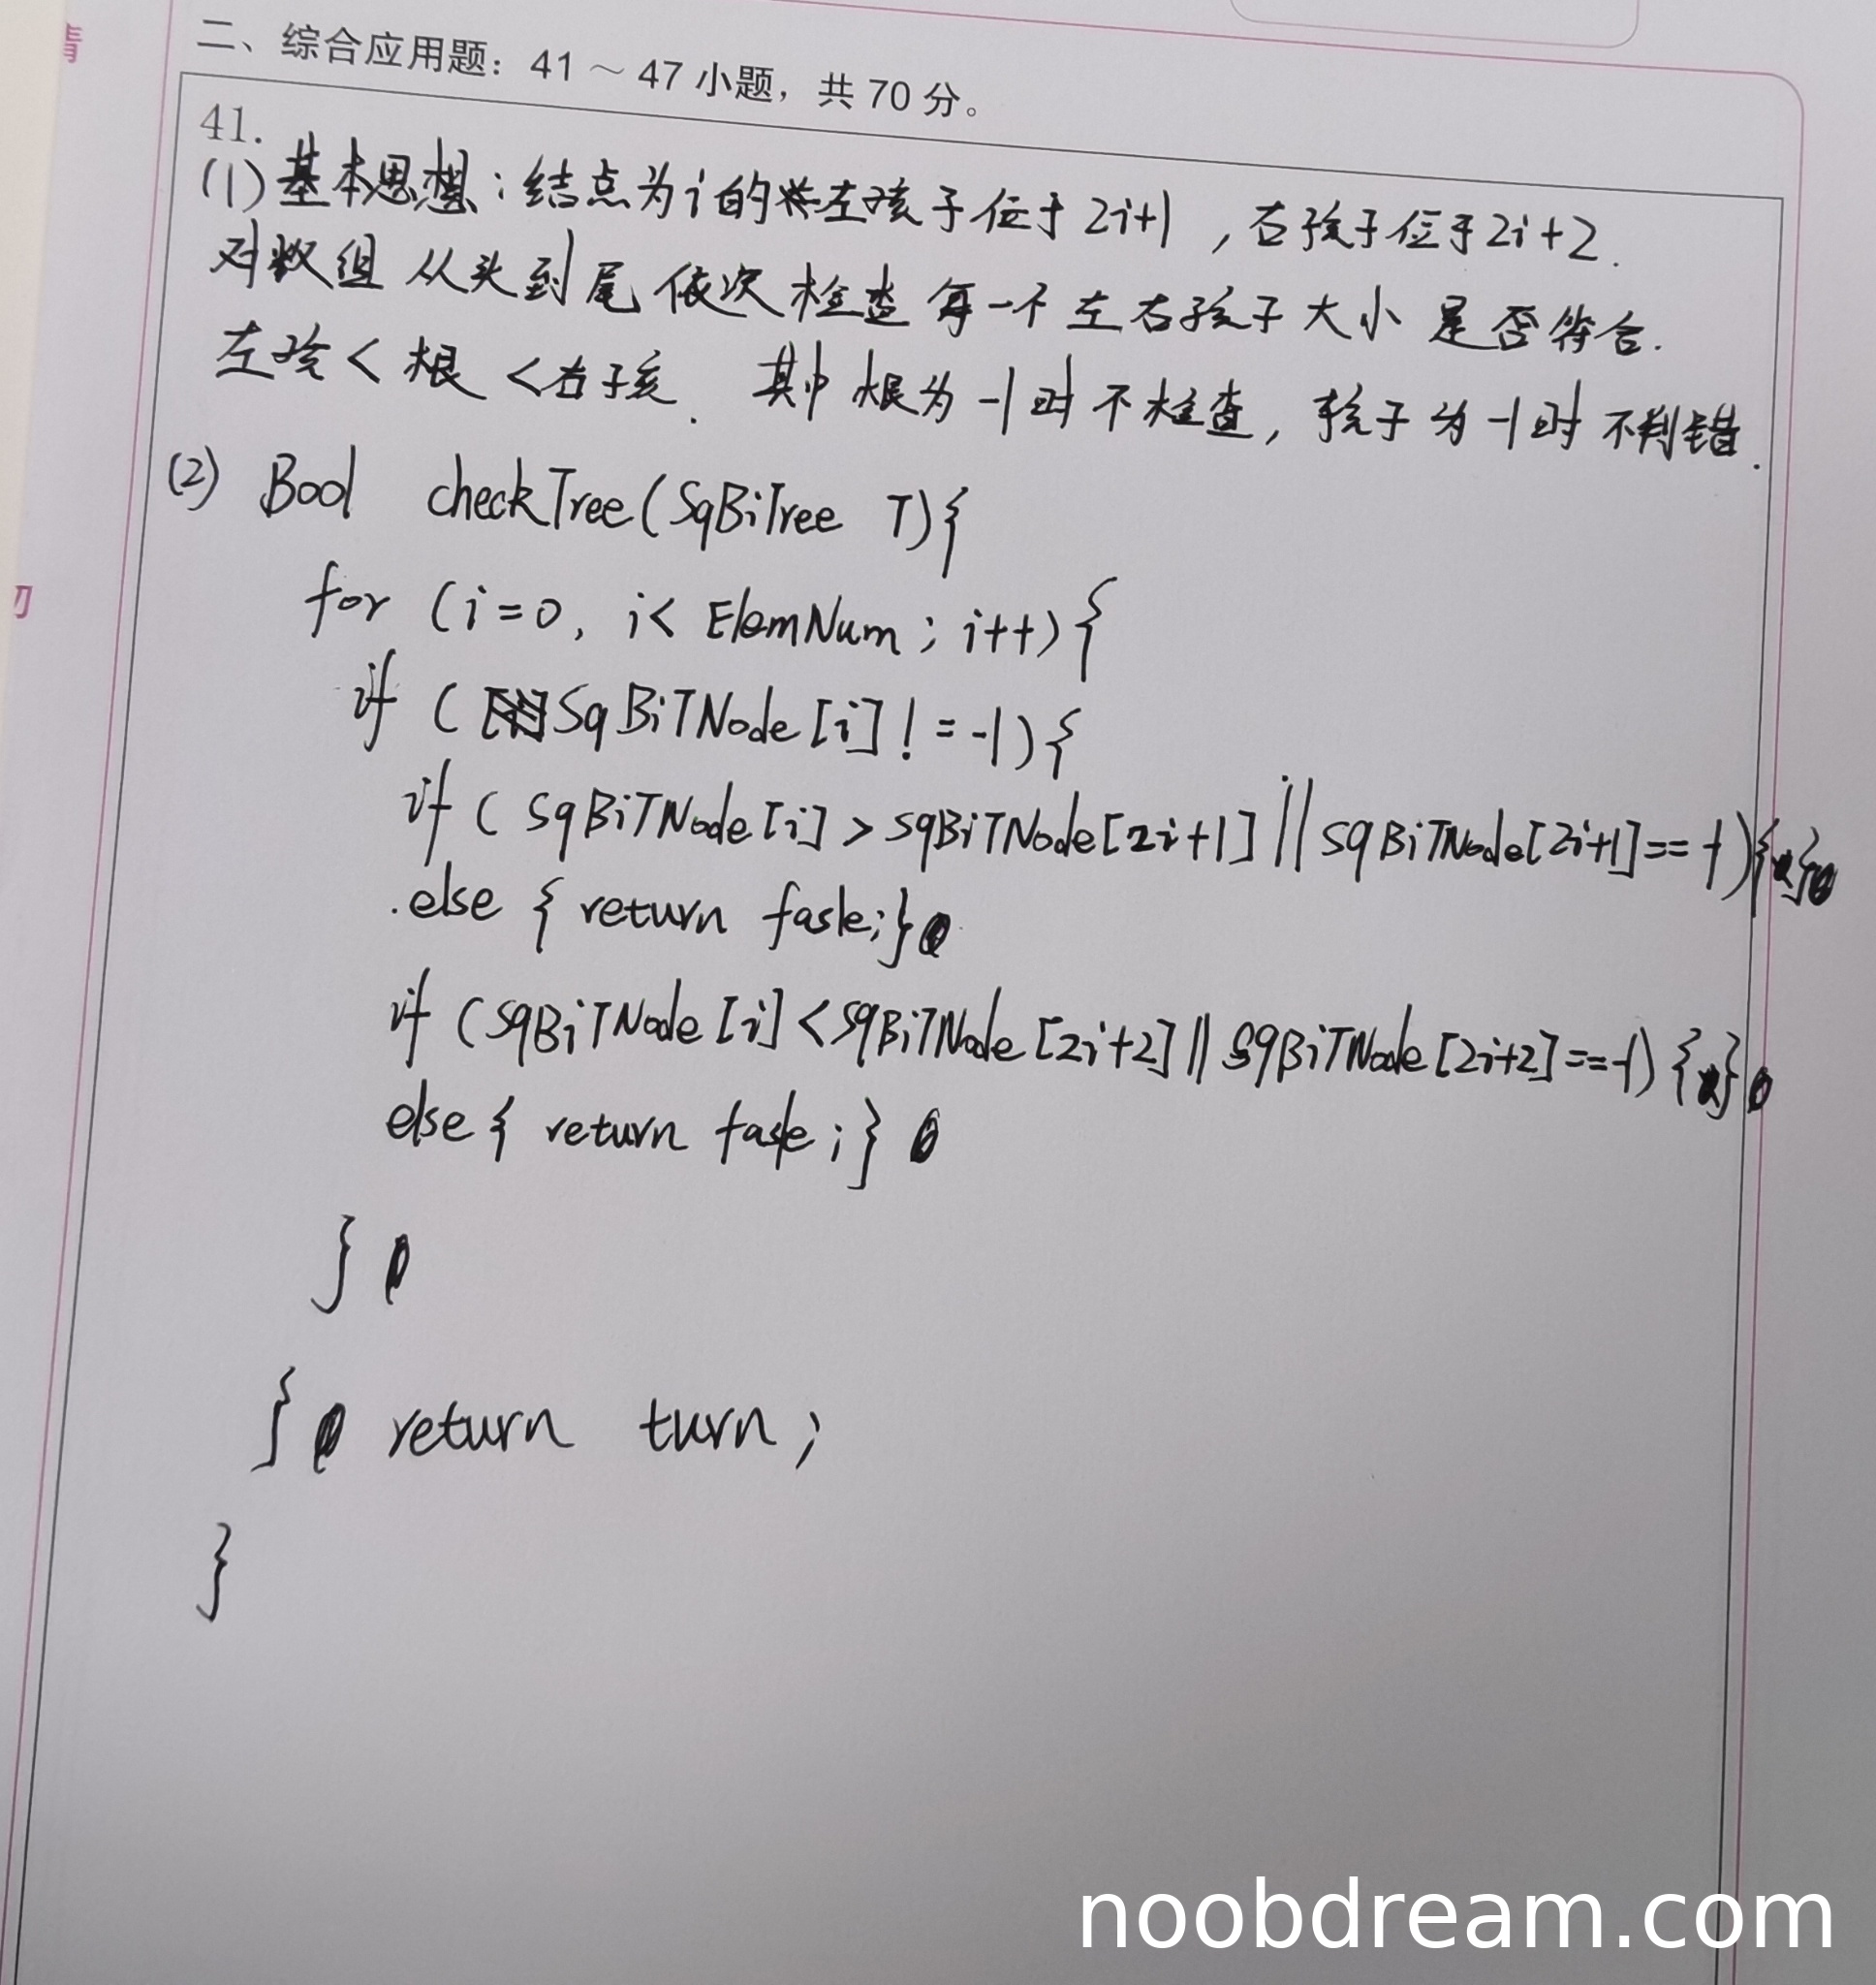 二、综合应用题：41～47 小题，共 70 分。
41.
(1) 基本思想：结点为i的左孩子位于2i+1，右孩子位于2i+2.
对数组从头到尾依次检查每一个左右孩子大小是否符合.
左孩<根<右子孩. 其中根为-1时不检查，孩子为-1时不判错.
(2) Bool checkTree(SqBiTree T){
for (i=0, i< ElemNum; i++){
if (SqBiTNode[i]!=-1){
if (SqBiTNode[i]>SqBiTNode[2i+1]||SqBiTNode[2i+1]==-1){}
else { return fasle;}
if (SqBiTNode[i]<SqBiTNode[2i+2]||SqBiTNode[2i+2]==-1){}
else { return fasle;}
}
} return turn;
}
noobdream.com